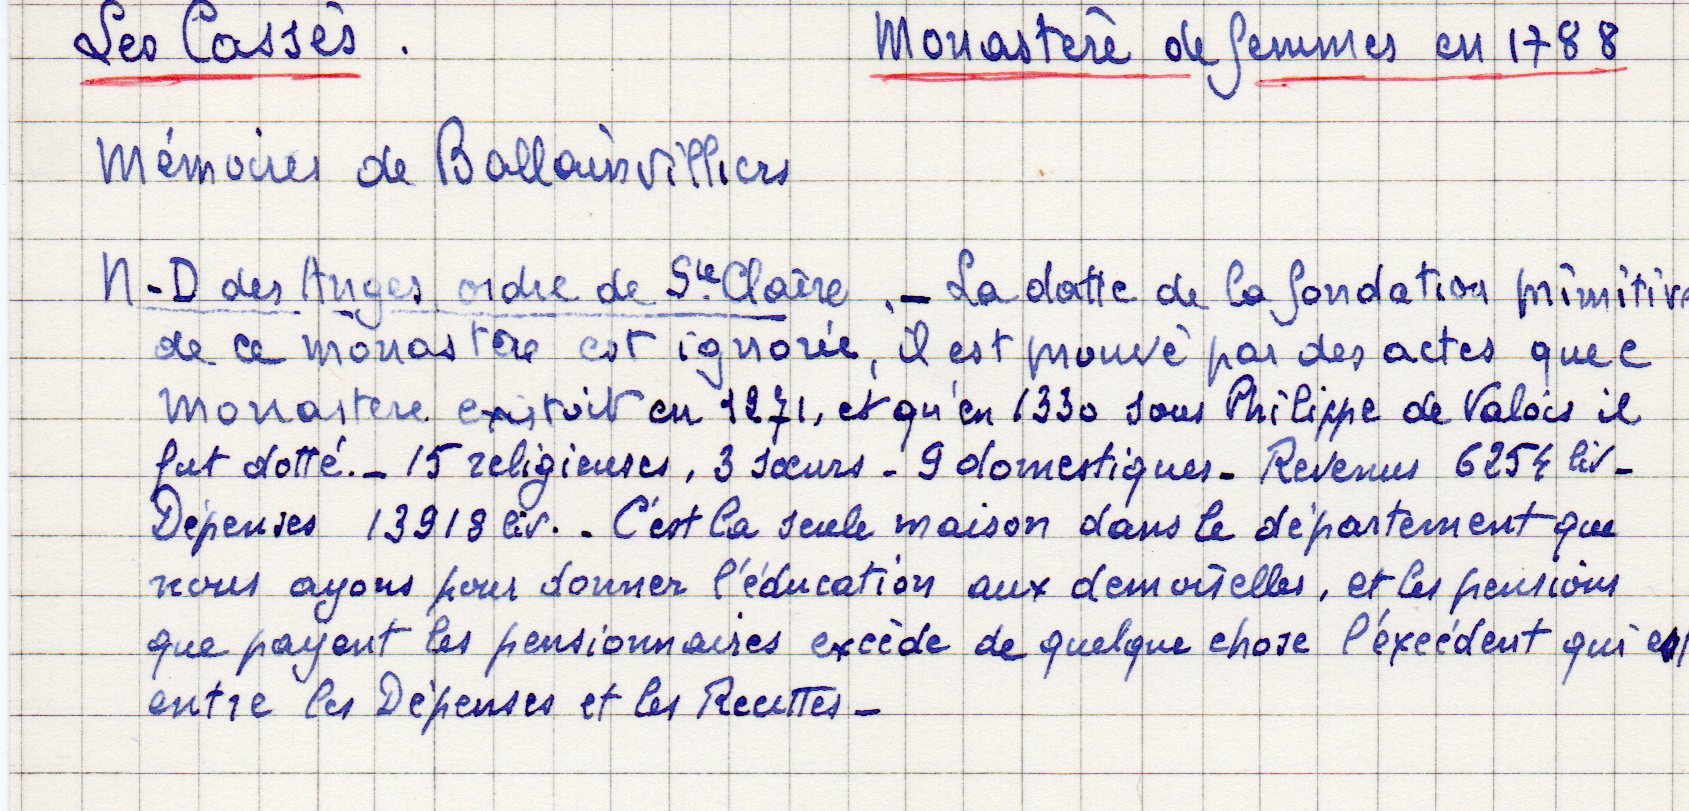 Les Cassès. Monastère de femmes en 1788
Mémoires de Ballainvilliers
N-D des Anges, ordre de Ste Claire. - La datte de la fondation primitive
de ce monastère est ignorée, il est prouvé par des actes que ce
monastère existoit en 1271, et qu'en 1330 sous Philippe de Valois il
fut dotté. - 15 religieuses, 3 sœurs - 9 domestiques - Revenus 6254 liv -
Dépenses 13918 liv. - C'est la seule maison dans le département que
nous ayons pour donner l'éducation aux demoiselles, et les pensions
que payent les pensionnaires excède de quelque chose l'éxcédent qui est
entre les Dépenses et les Recettes -